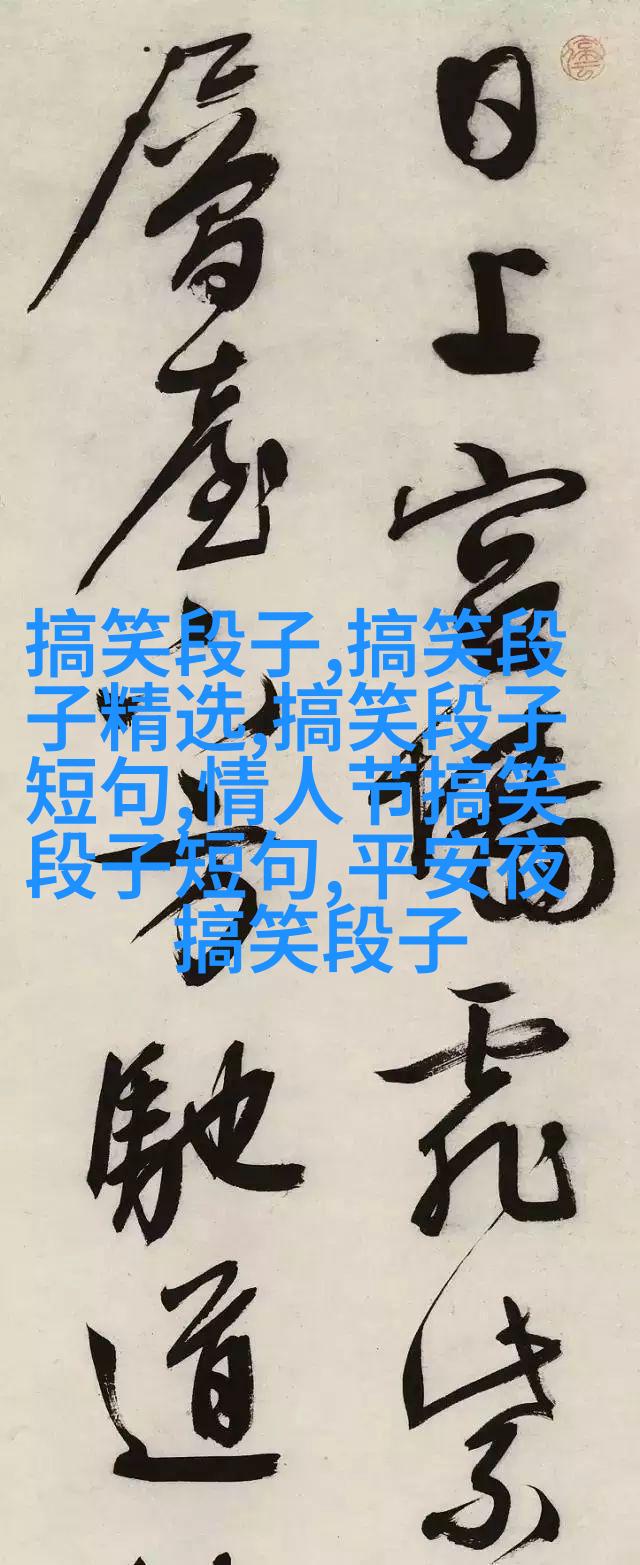 日上宮墻霏紫
層臺下方馳道
搞笑段子,搞笑段
子精选,搞笑段子
短句,情人节搞笑
段子短句,平安夜
搞笑段子